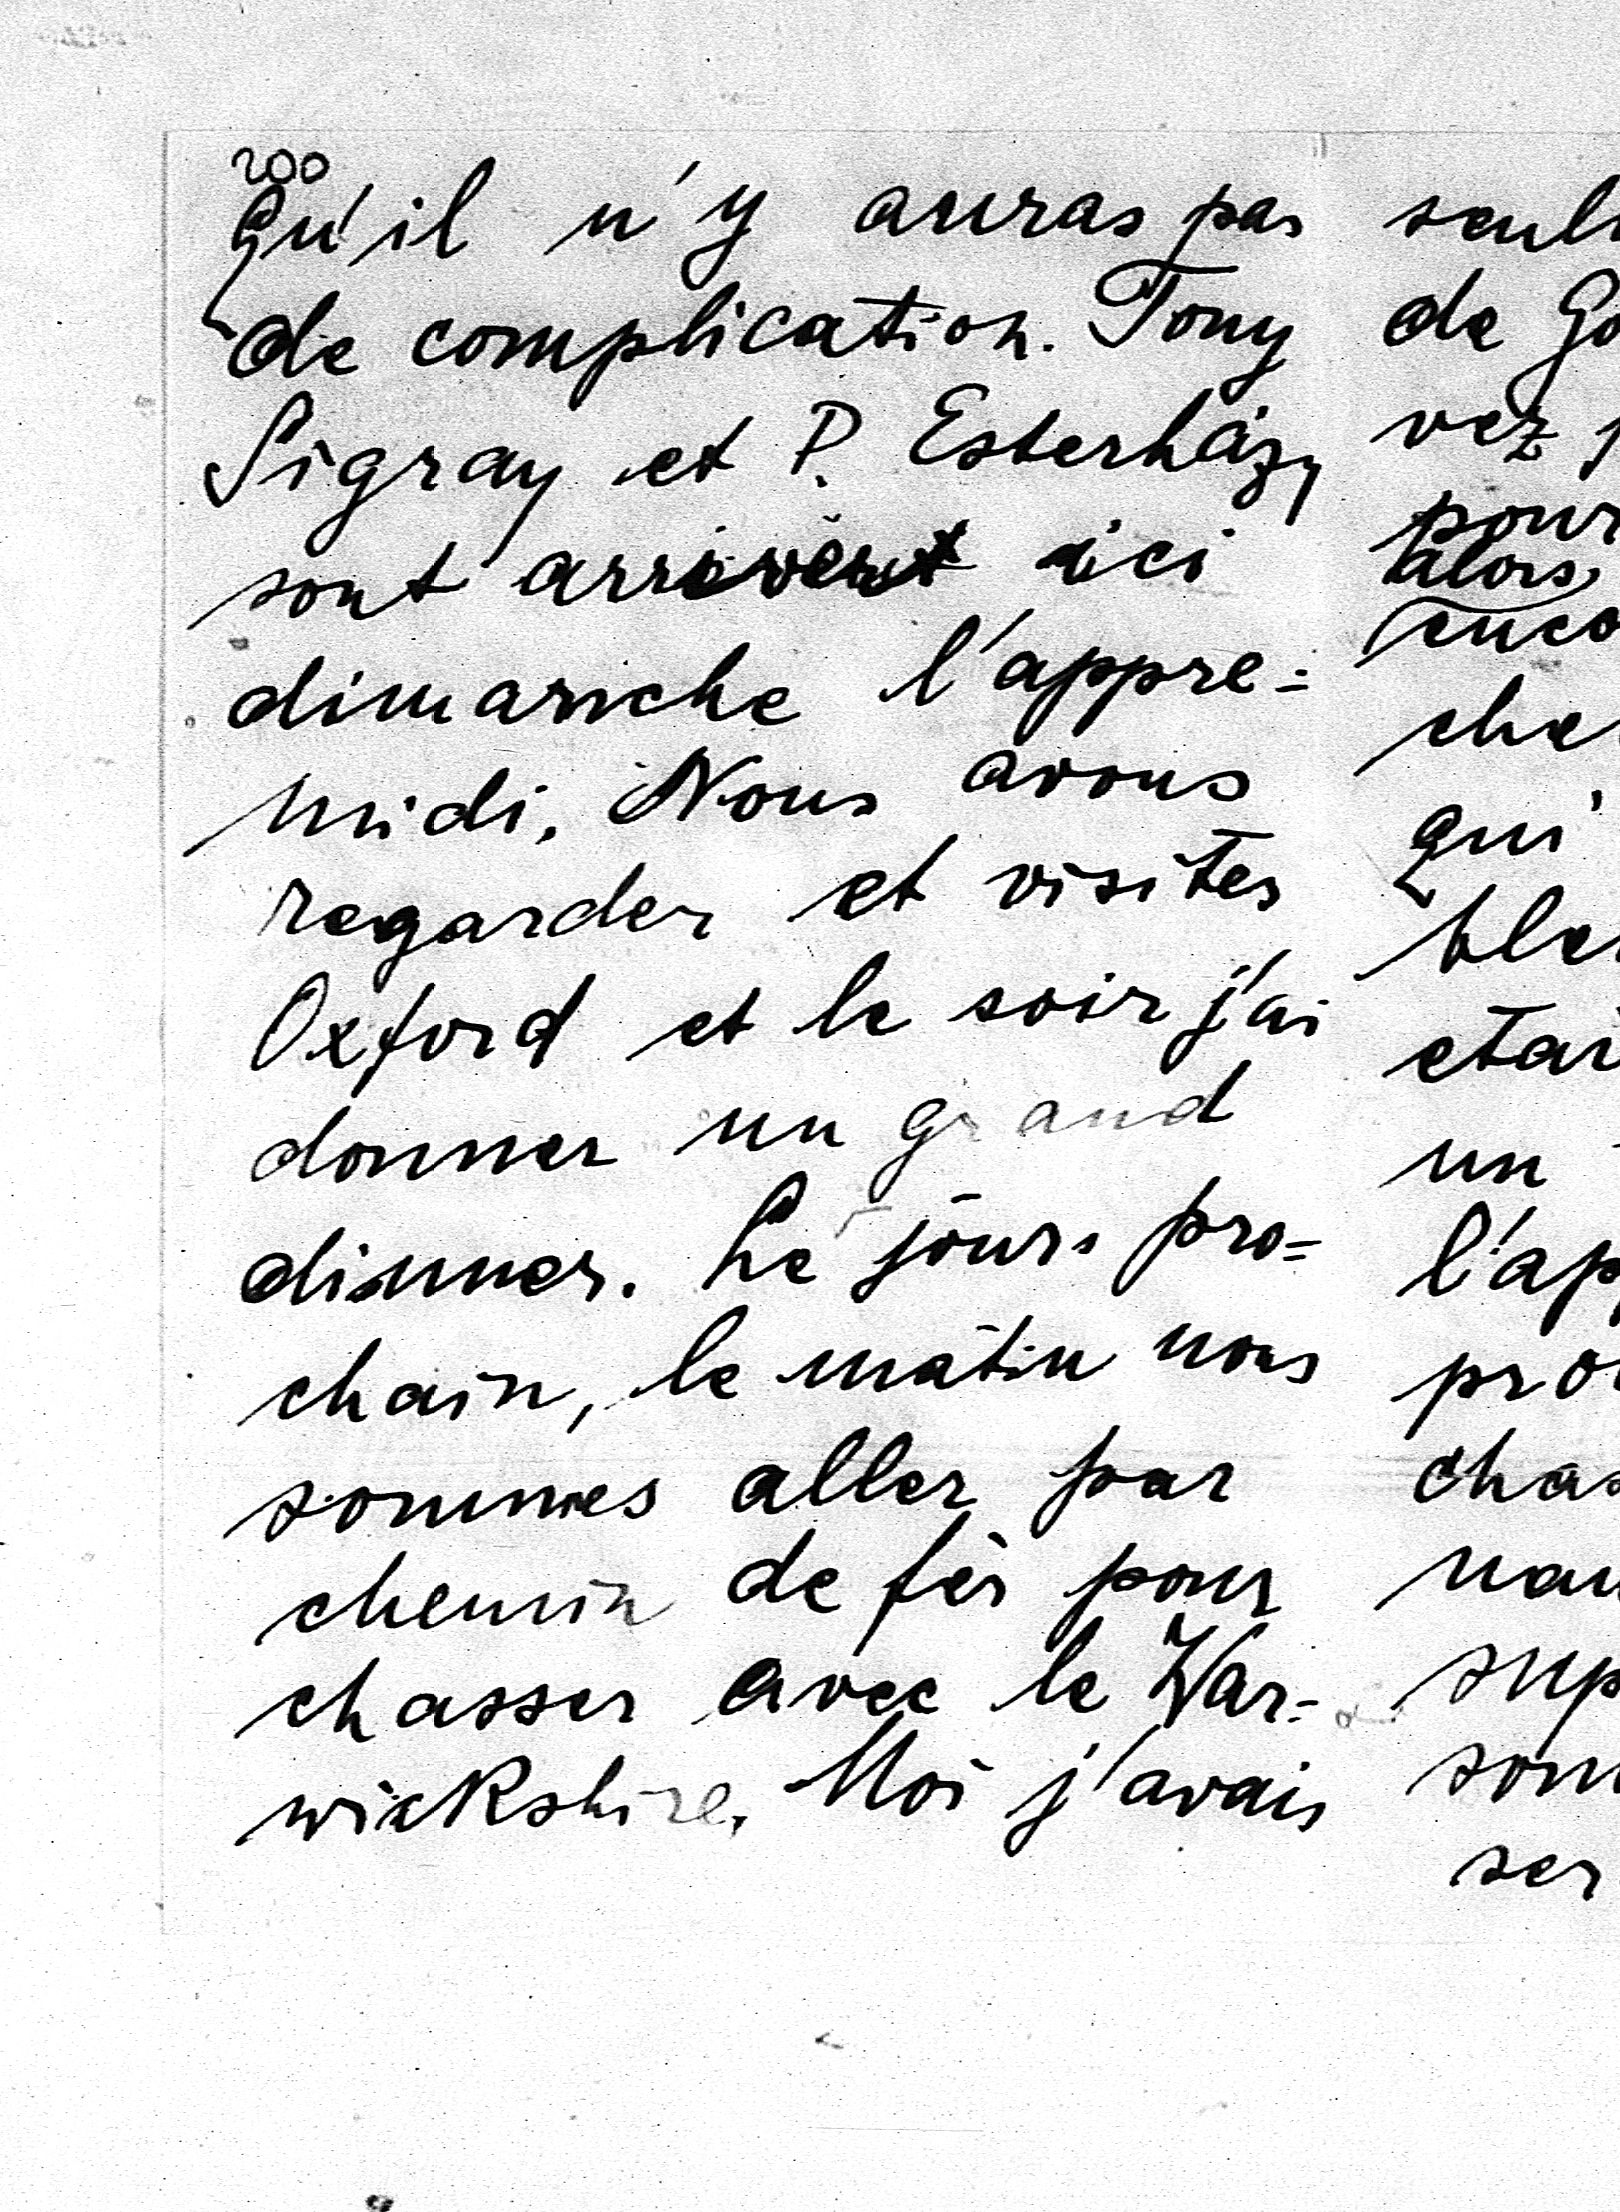 200
Qu'il n'y auras pas
de complication. Tony
Sigray et P. Esterházy
sont arrivèrent ici
dimanche l'appre=
midi, Nous avons
regarder et visites
Oxford et le soir j'ai
donner un grand
dinner. Le jours pro=
chain, le matin nous
sommes aller par
chemin de fèr pour
chasser avec le War=
wickshire, Moi j'avais
seul
de Go
vez p
pour
alors
enco
che
qui
ble
etai
un
l'app
pro
chas
nau
sup
som
ser